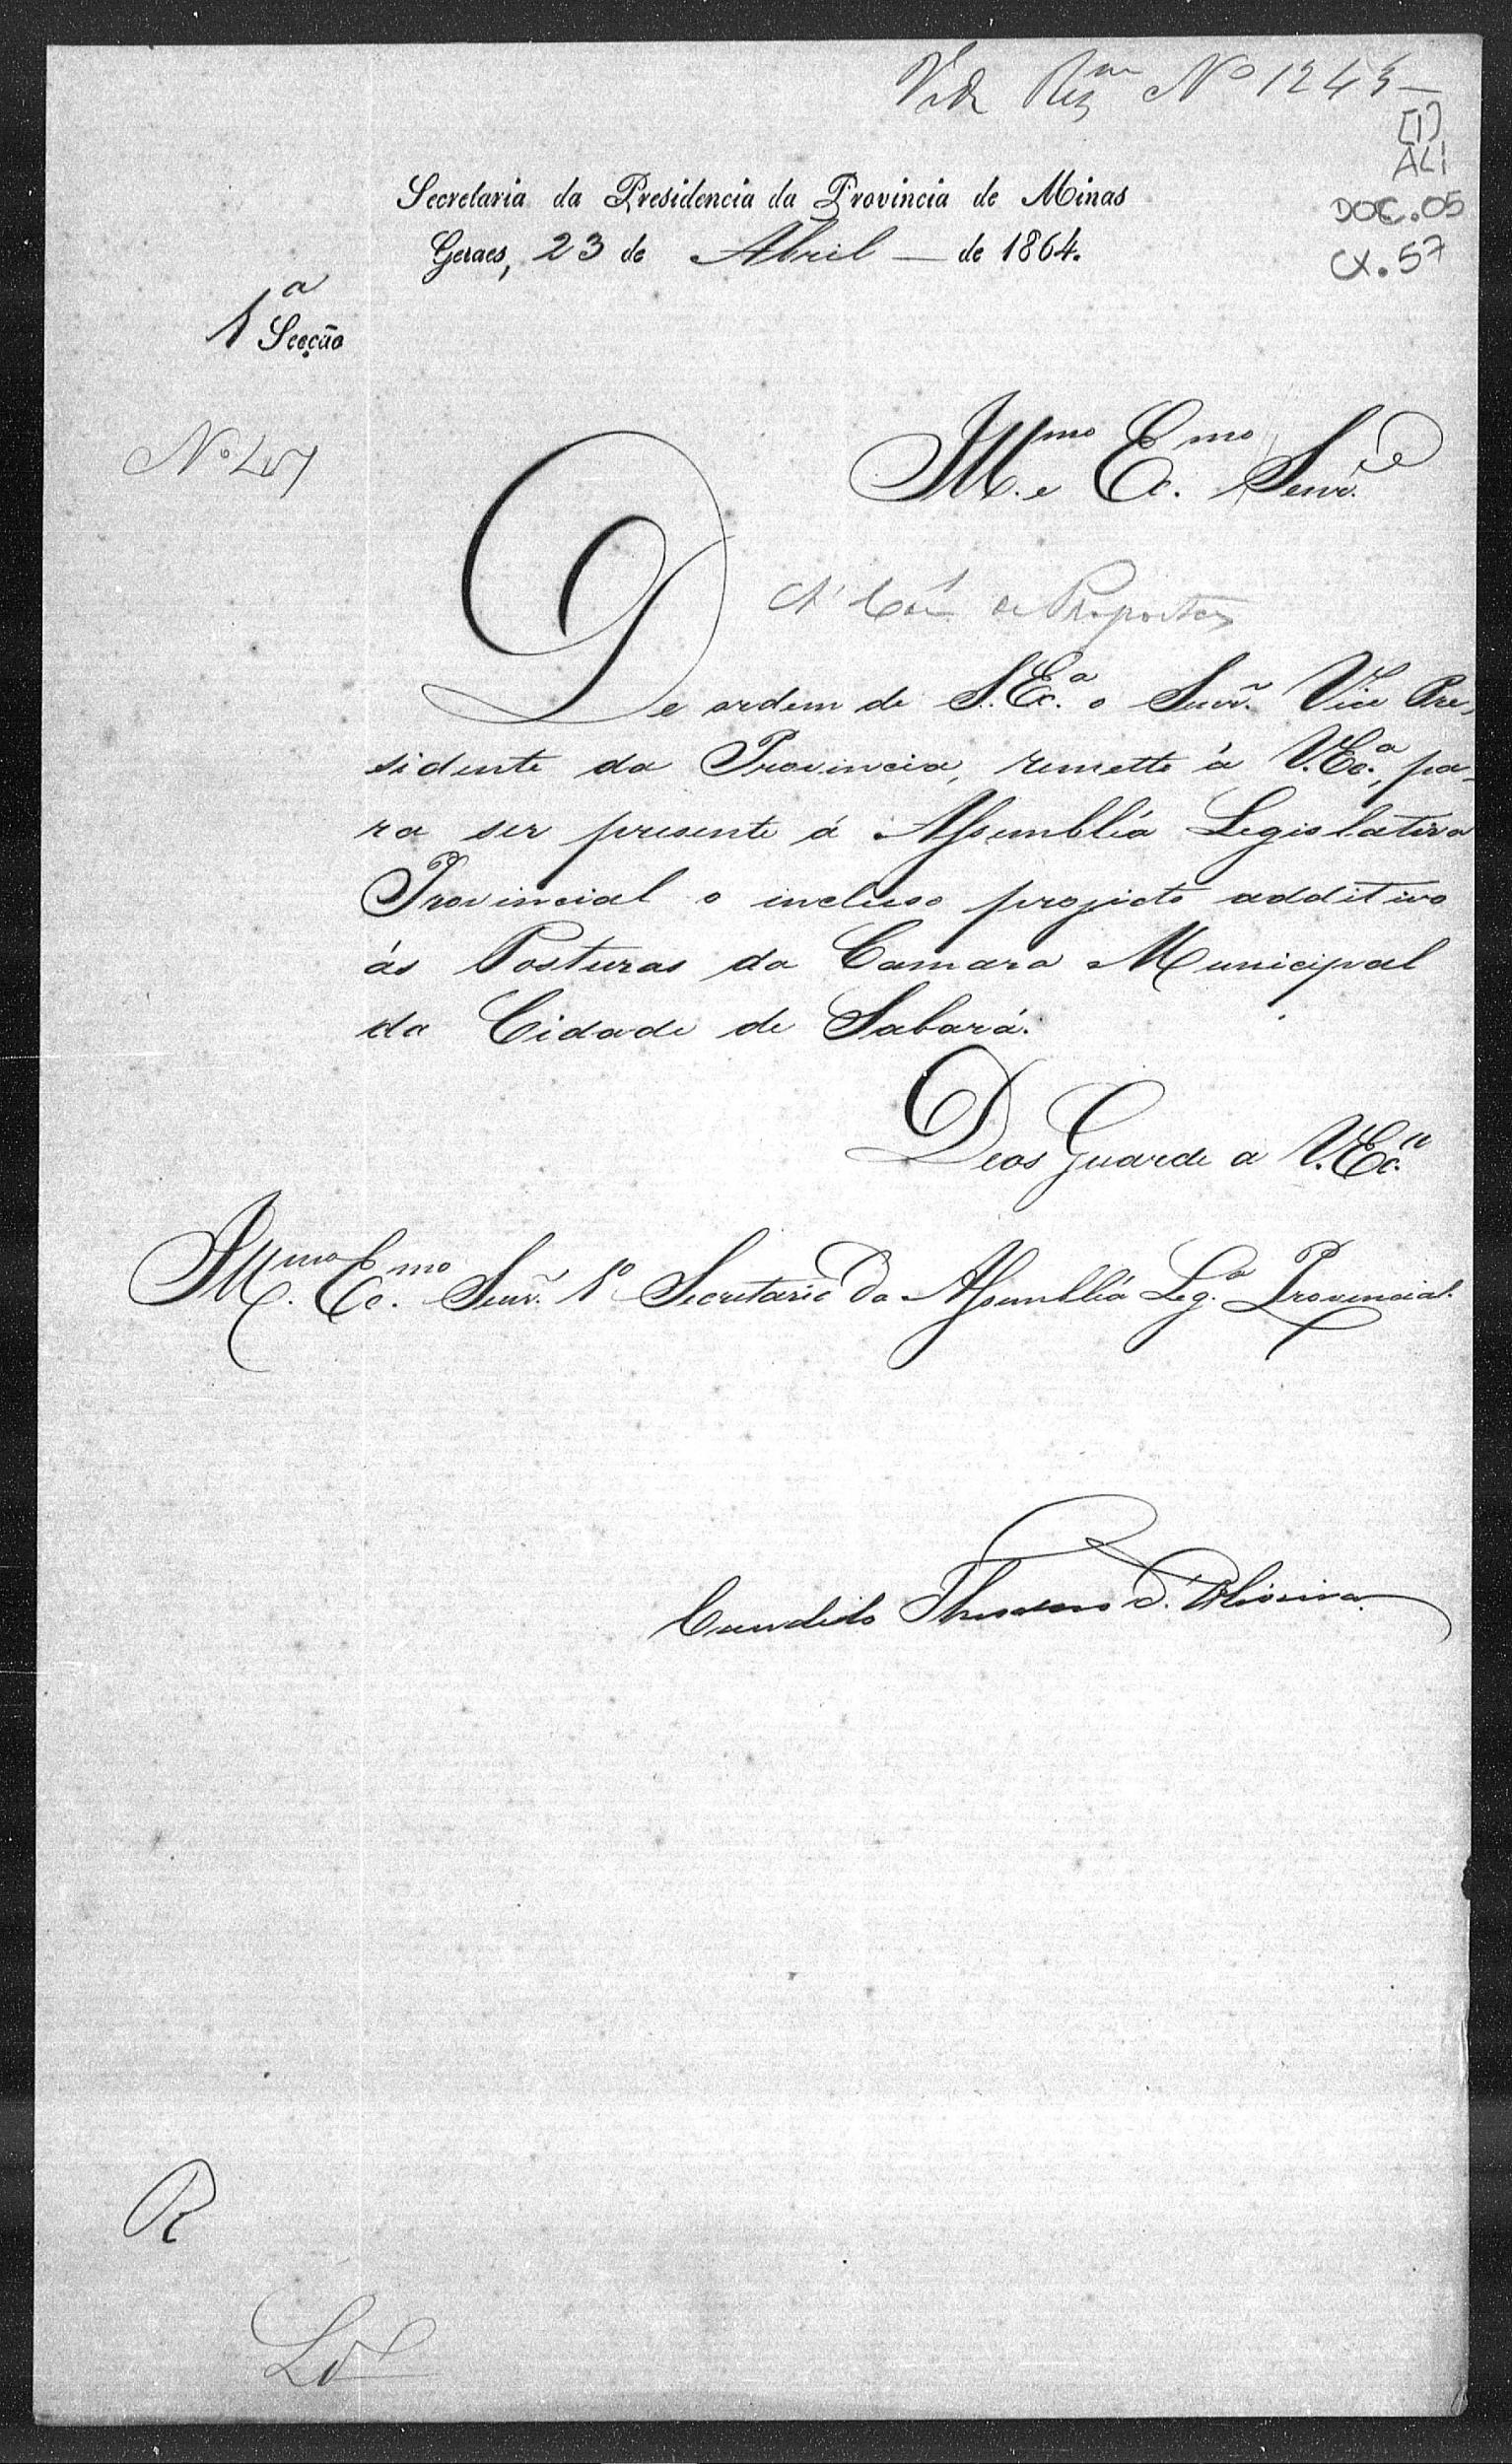 Nº 1243
[1]
AL1
DOC. 05
CX. 57
Secretaria da Presidencia da Provincia de Minas
Geraes, 23 de Abril — de 1864.
1ª Secção
Illmo. e Exmo. Senr.
De ordem de S. Exª. o Senr. Vice Pre-
sidente da Provincia, remetto á V. Exª., pa-
ra ser presente á Assembléa Legislativa
Provincial o incluso projecto additivo
ás Posturas da Camara Municipal
da Cidade de Sabará.
Deos Guarde a V. Exª.
Illmo. Exmo. Senr. 1º Secretario da Assembléa Legª. Provincial.
Candido Theodoro d'Oliveira